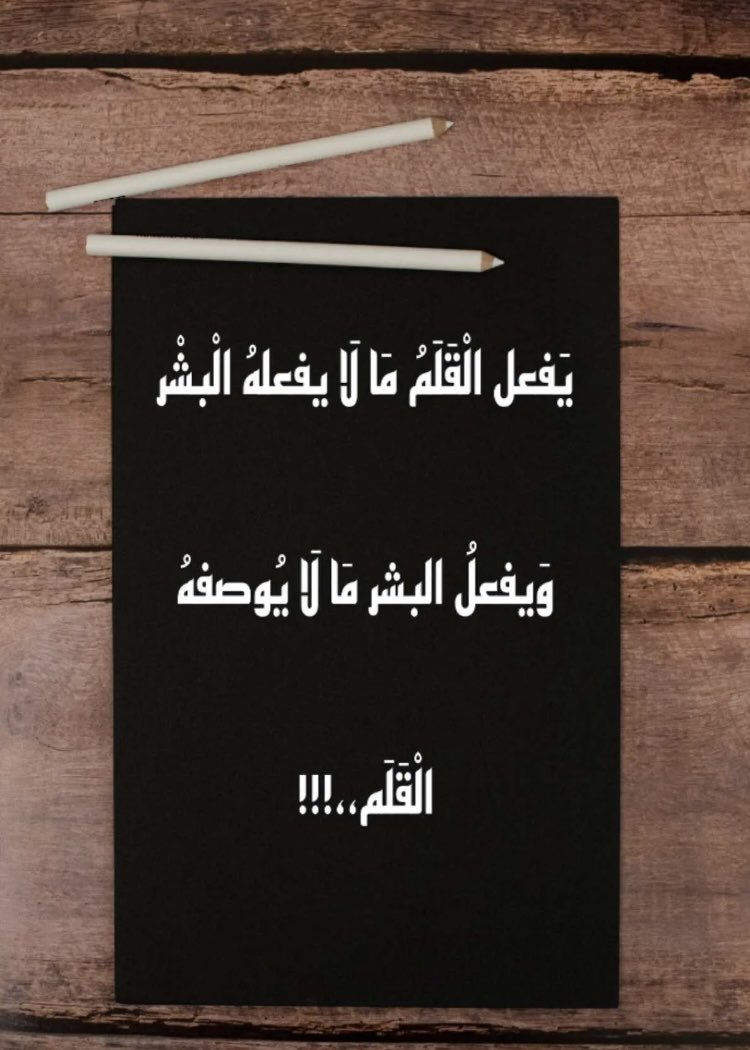 يَفعل الْقَلَمُ مَا لَا يفعلهُ الْبشْر
وَيفعلُ البشر مَا لَا يُوصفهُ
الْقَلَم،،!!!